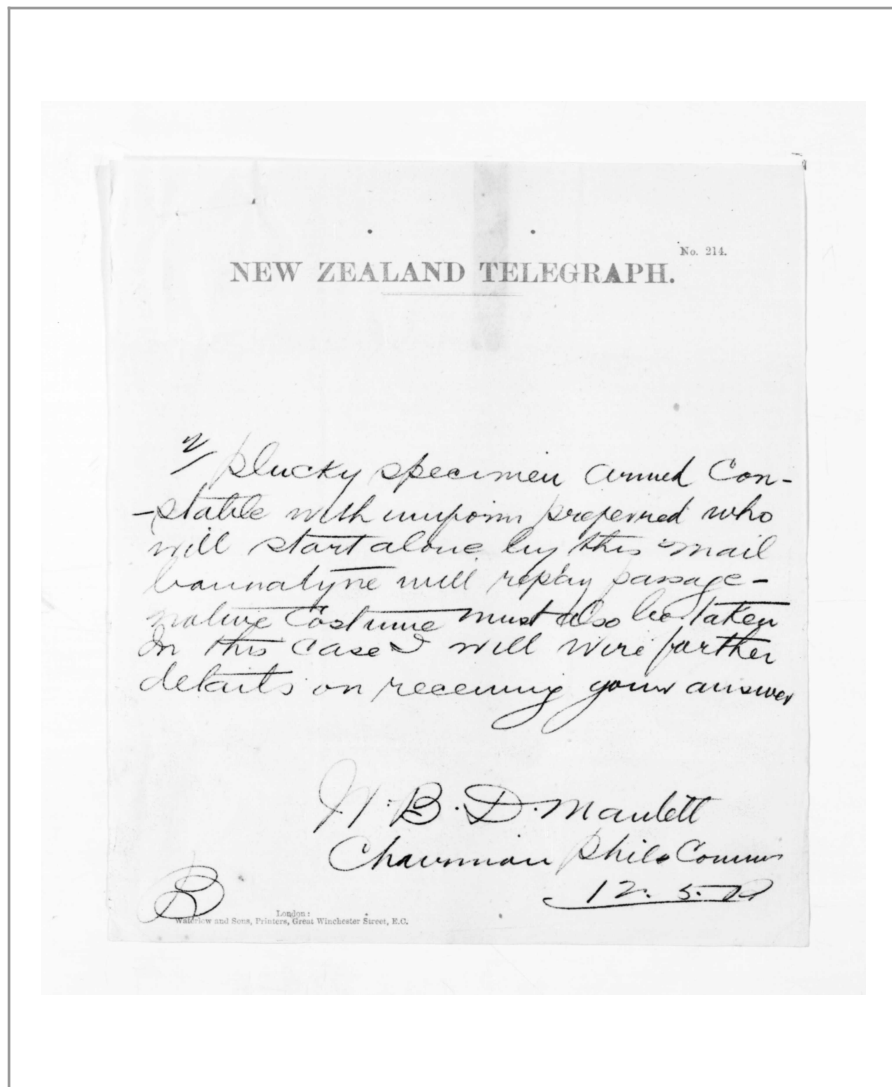 No. 214.
NEW ZEALAND TELEGRAPH.
2/ plucky specimen armed Con-
-stable with uniform preferred who
will start alone by this mail
bannatyne will repay passage -
native Costume must also be taken
In this case I will wire further
details on receiving your answer
W. B. D. Mantell
Chairman Philo Comm
12. 5.
B
London:
Waterlow and Sons, Printers, Great Winchester Street, E.C.